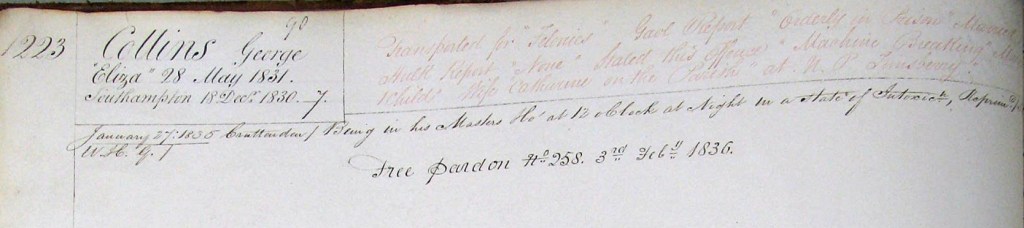 90
1223 Collins George
"Eliza" 28 May 1831.
Southampton 18 Decr. 1830. 7.
Transported for "Felonies" Gaol Report "Orderly in Prison" Married
Hulk Report "None" Stated this Offence "Machine Breaking"
Wife Catharine on the at N. P.
January 27: 1835 / Being in his Masters Ho' at 12 oClock at Night in a State of Intoxicn., Reprimd /
W. H. G. /
Free Pardon No 258. 3rd Feby 1836.